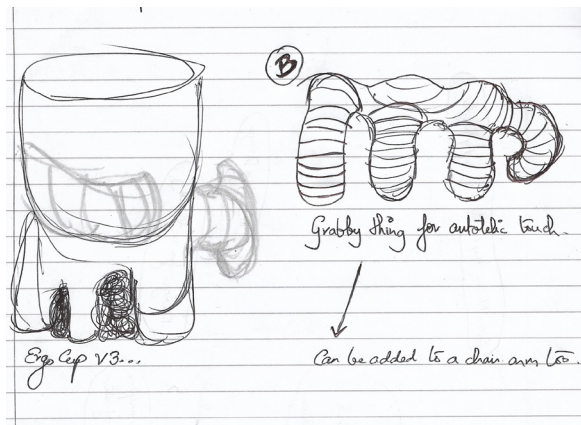 B
Grabby thing for autotelic touch.
Ergo Cup V3...
Can be added to a chair arm too.